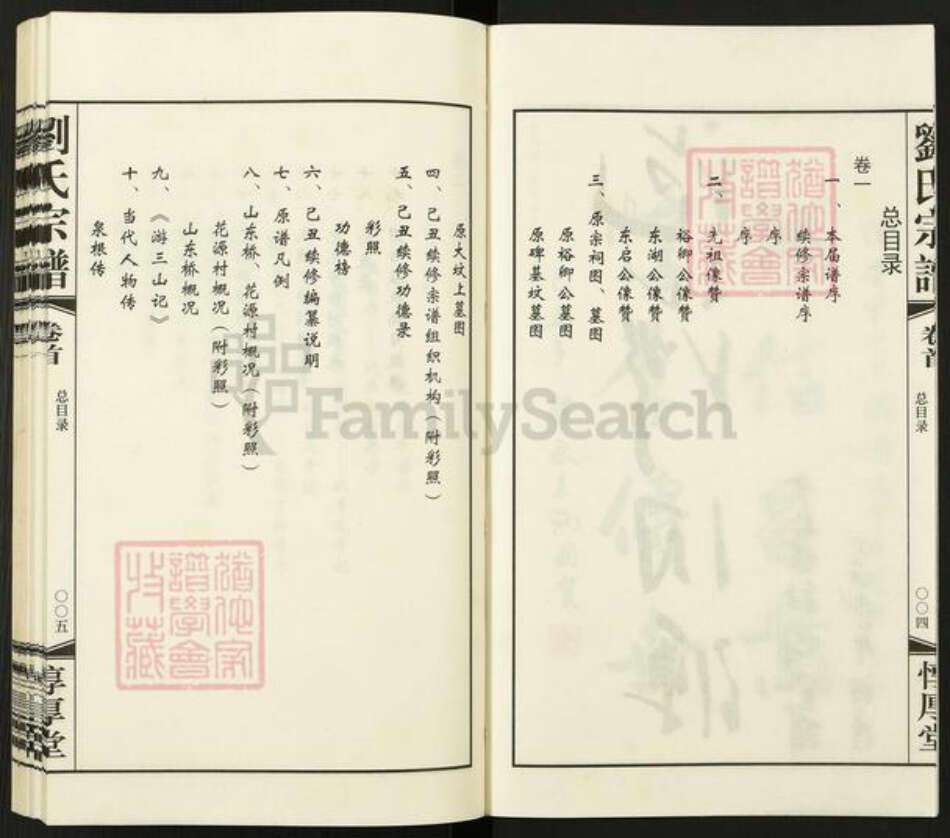 劉氏宗譜
卷首
总目录
〇〇四
惇厚堂
总目录
卷一
一、本届谱序
续修宗谱序
序
序
二、先祖像赞
裕卿公像赞
东湖公像赞
东启公像赞
三、原宗祠图、墓图
原裕卿公墓图
原碑墓坟墓图
原大坟上墓图
四、己丑续修宗谱组织机构（附彩照）
五、己丑续修功德录
彩照
功德榜
六、己丑续修编纂说明
七、原谱凡例
八、山东桥、花源村概况（附彩照）
花源村概况（附彩照）
山东桥概况
九、《游三山记》
十、当代人物传
泉根传
劉氏宗譜
卷首
总目录
〇〇五
惇厚堂
FamilySearch
猶他家
譜學會
收藏
猶他家
譜學會
收藏